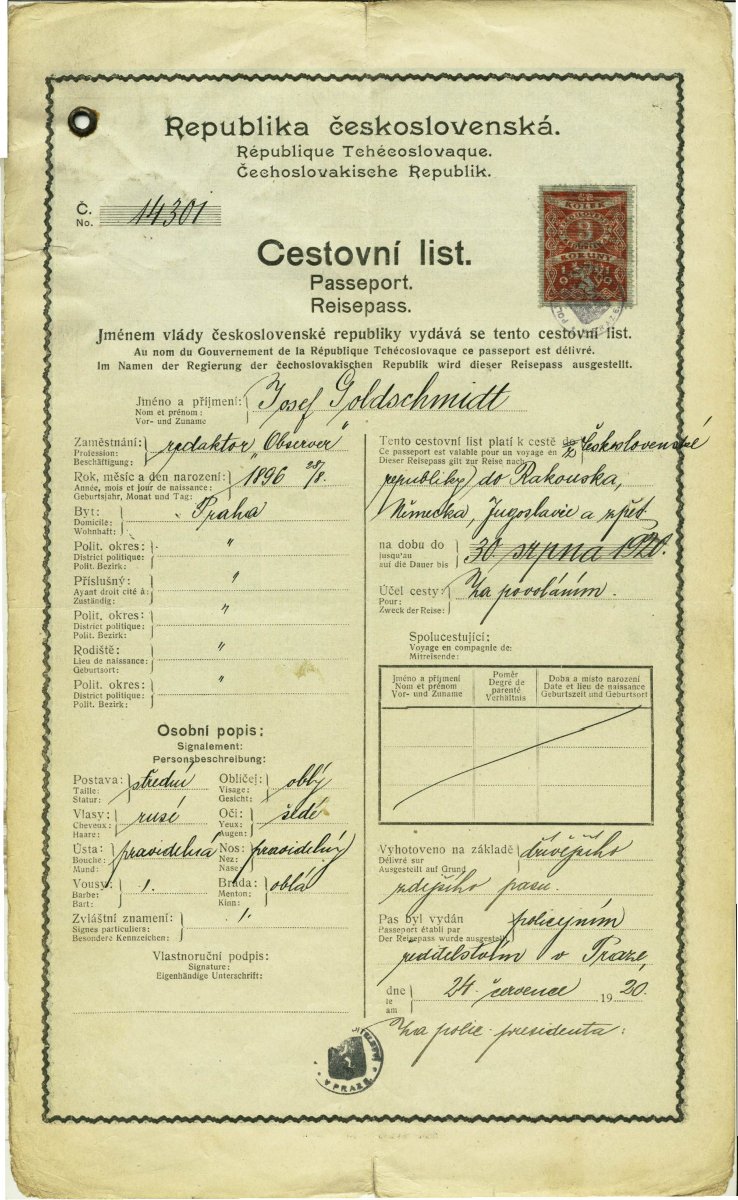 Republika československá.
République Tchécoslovaque.
Čechoslovakische Republik.
Č.
No. 14301
KOLEK
3
KORUNY
1919
Cestovní list.
Passeport.
Reisepass.
Jménem vlády československé republiky vydává se tento cestovní list.
Au nom du Gouvernement de la République Tchécoslovaque ce passeport est délivré.
Im Namen der Regierung der čechoslovakischen Republik wird dieser Reisepass ausgestellt.
Jméno a příjmení: Josef Goldschmidt
Nom et prénom:
Vor- und Zuname
Zaměstnání: redaktor „Observer"
Profession:
Beschäftigung:
Rok, měsíc a den narození: 1896 28/8.
Année, mois et jour de naissance:
Geburtsjahr, Monat und Tag:
Byt: Praha
Domicile:
Wohnhaft:
Polit. okres: "
District politique:
Polit. Bezirk:
Příslušný: "
Ayant droit cité à:
Zuständig:
Polit. okres: "
District politique:
Polit. Bezirk:
Rodiště: "
Lieu de naissance:
Geburtsort:
Polit. okres: "
District politique:
Polit. Bezirk:
Osobní popis:
Signalement:
Personsbeschreibung:
Postava: střední
Taille:
Statur:
Obličej: oblý
Visage:
Gesicht:
Vlasy: rusé
Cheveux:
Haare:
Oči: šedé
Yeux:
Augen:
Ústa: pravidelná
Bouche:
Mund:
Nos: pravidelný
Nez:
Nase:
Vousy:
Barbe:
Bart:
Brada: oblá
Menton:
Kinn:
Zvláštní znamení:
Signes particuliers:
Besondere Kennzeichen:
Vlastnoruční podpis:
Signature:
Eigenhändige Unterschrift:
Tento cestovní list platí k cestě do z Československé
Ce passeport est valable pour un voyage en
Dieser Reisepass gilt zur Reise nach
republiky do Rakouska,
Německa, Jugoslavie a zpět
na dobu do 30. srpna 1920.
jusqu'au
auf die Dauer bis
Účel cesty: Za povoláním.
Pour:
Zweck der Reise:
Spolucestující:
Voyage en compagnie de:
Mitreisende:
Jméno a příjmení
Nom et prénom
Vor- und Zuname
Poměr
Degré de
parenté
Verhältnis
Doba a místo narození
Date et lieu de naissance
Geburtszeit und Geburtsort
Vyhotoveno na základě dřívějšího
Délivré sur
Ausgestellt auf Grund
zdejšího pasu.
Pas byl vydán policejním
Passeport établi par
Der Reisepass wurde ausgestellt
ředitelstvím v Praze,
dne 24. července 1920.
le
am
Za polic. presidenta:
V PRAZE